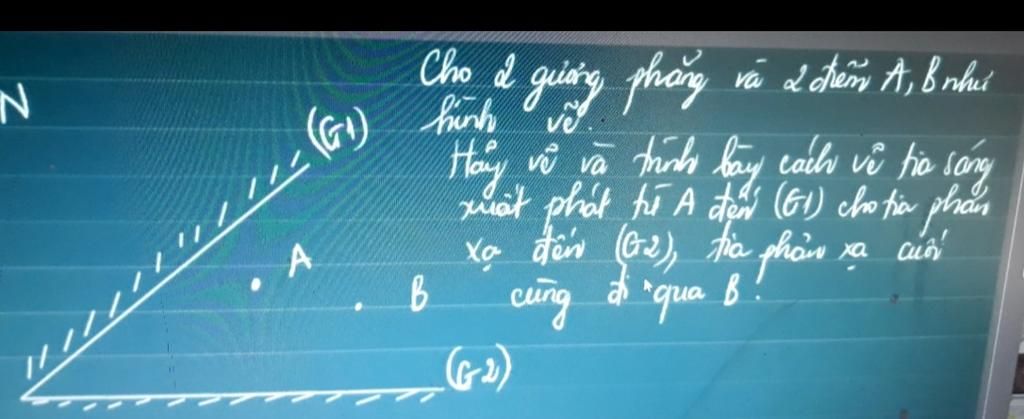 N
Cho 2 gương phẳng và 2 điểm A, B như
hình vẽ.
Hãy vẽ và trình bày cách vẽ tia sáng
xuất phát từ A đến (G1) cho tia phản
xạ đến (G2), tia phản xạ cuối
cùng đi qua B!
(G1)
A
B
(G2)